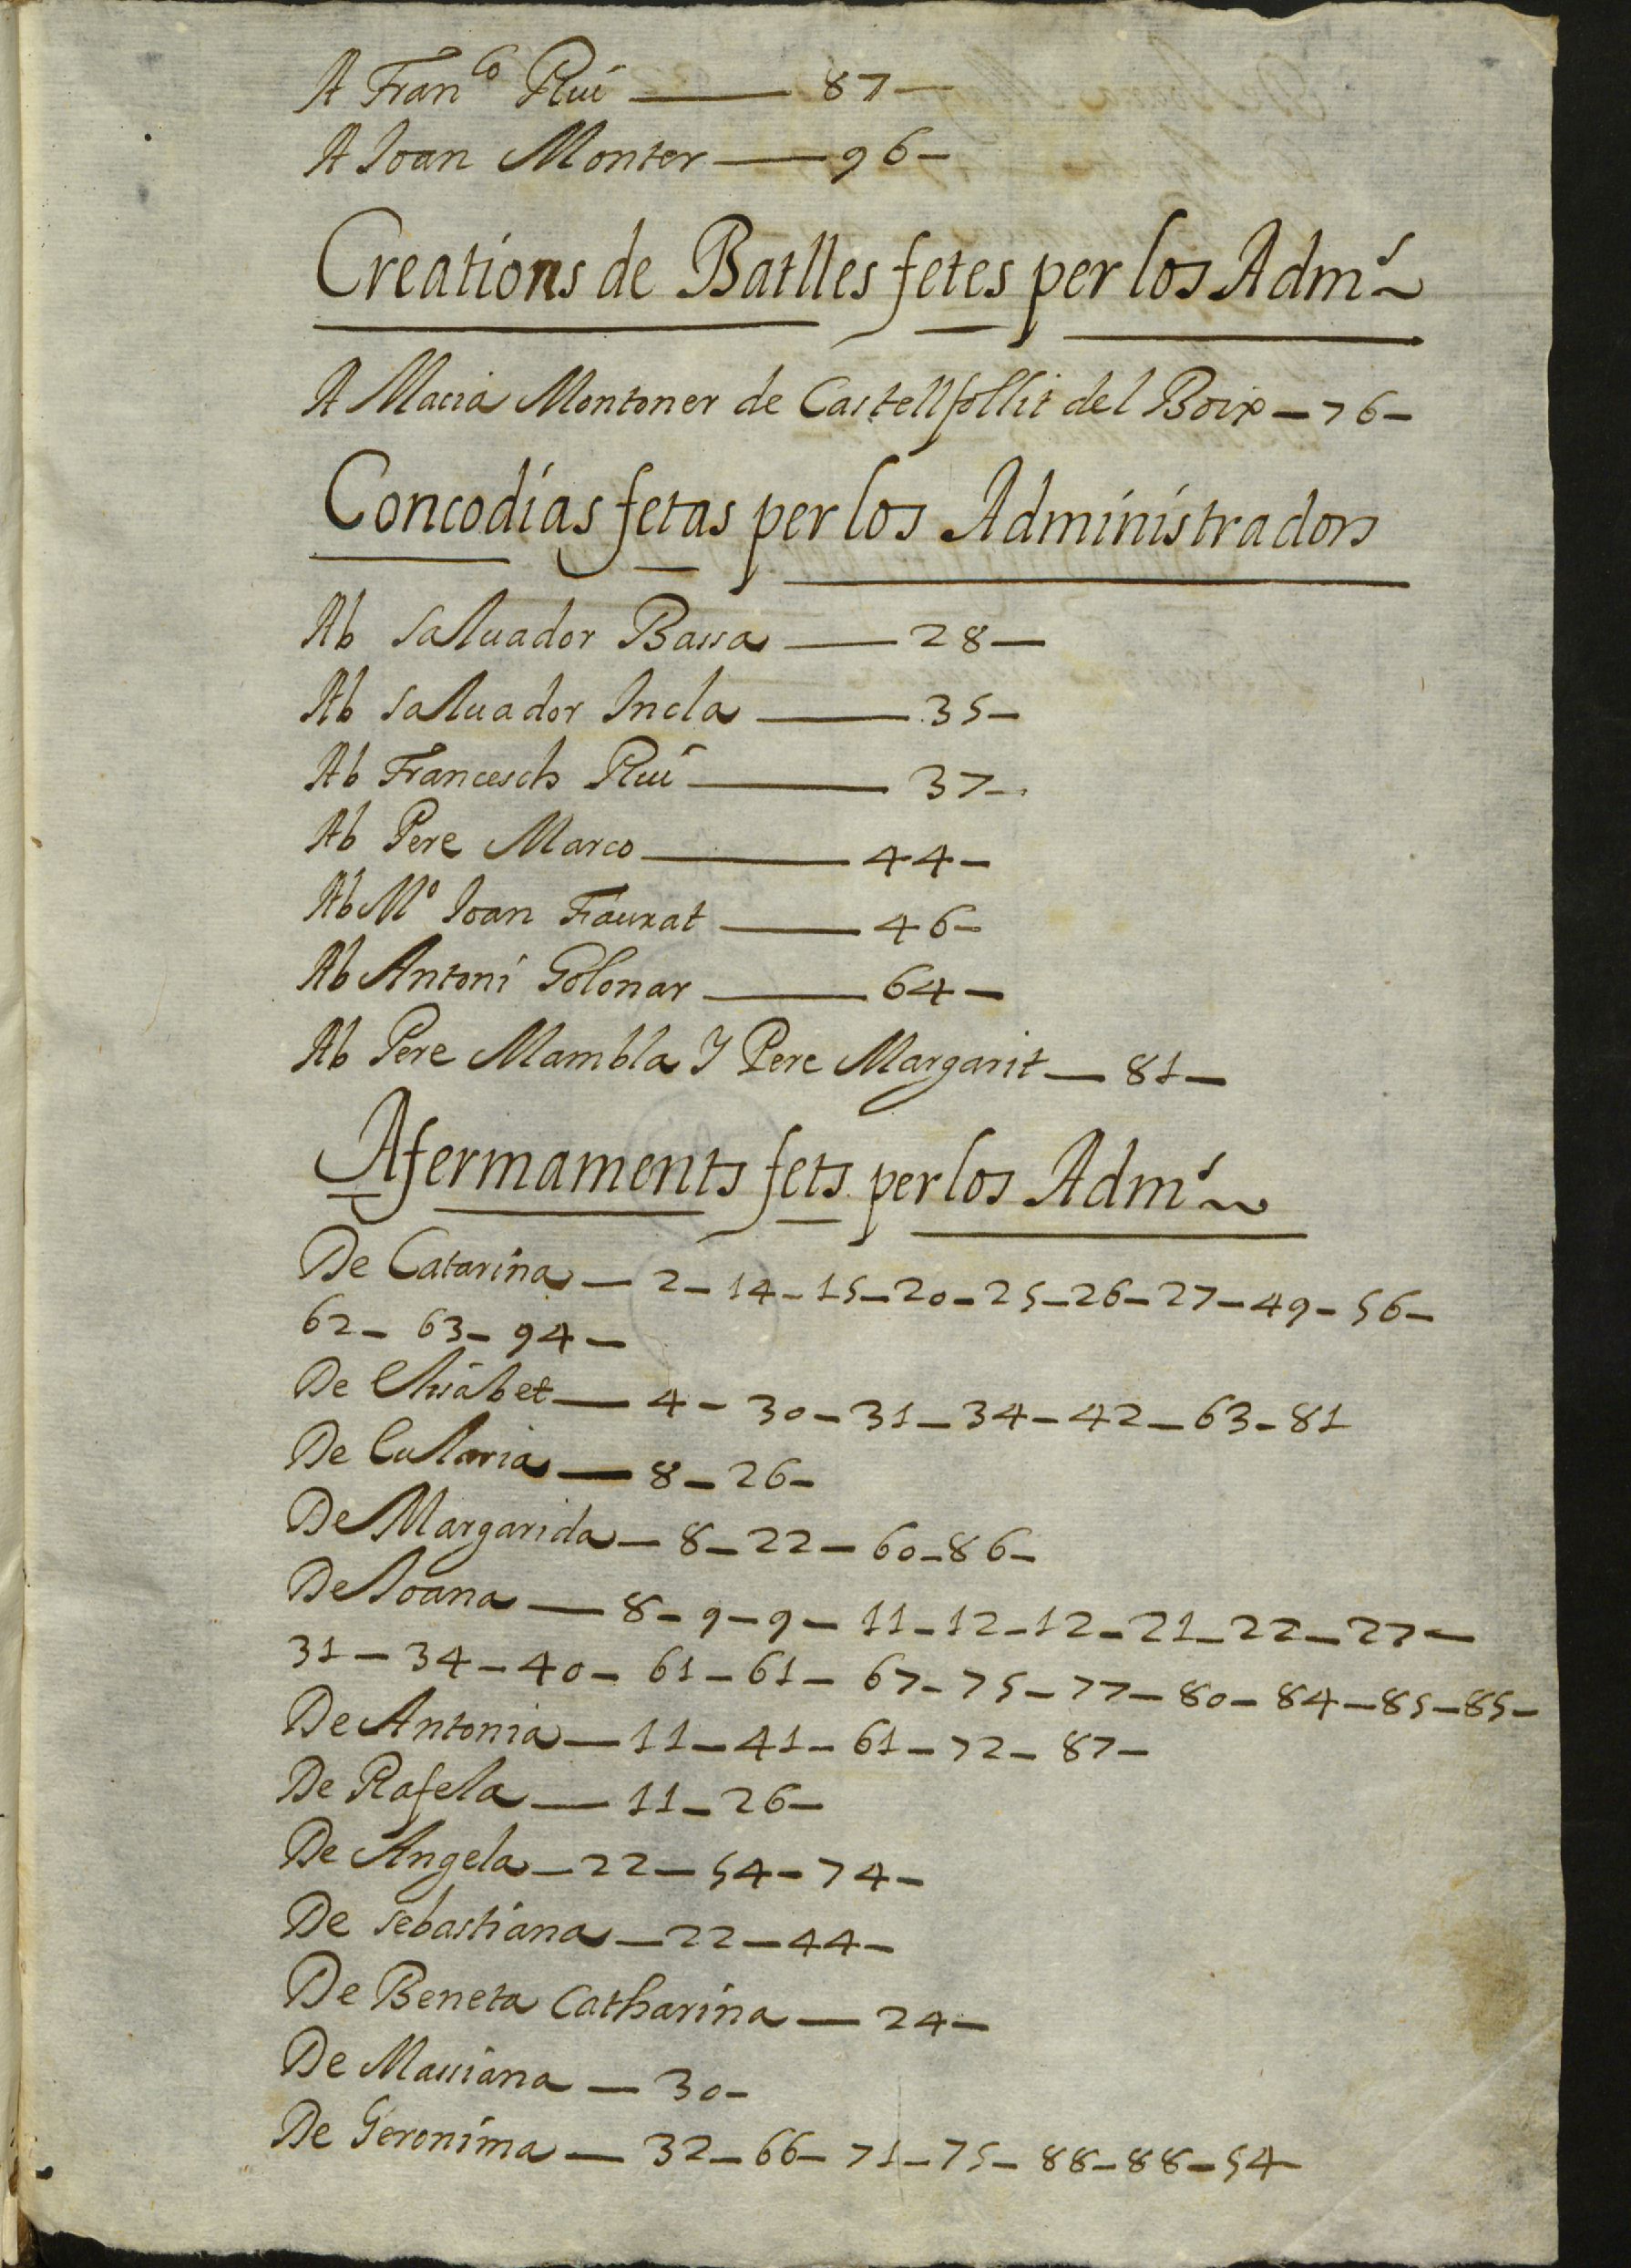 A Fran.co Rui — 87 —
A Joan Monter — 96 —
Creations de Batlles fetes per los Adm.s ~
A Macia Montoner de Castellfollit del Boix — 76 —
Concodias fetas per los Administradors
Ab saluador Bassa — 28 —
Ab saluador Incla — 35 —
Ab Francesch Rui — 37 —
Ab Pere Marco — 44 —
Ab M.o Joan Faurat — 46 —
Ab Antoni Golonar — 64 —
Ab Pere Mambla Y Pere Margarit — 81 —
Afermaments fets per los Adm.s ~
De Catarina — 2 — 14 — 15 — 20 — 25 — 26 — 27 — 49 — 56 —
62 — 63 — 94 —
De Elisabet — 4 — 30 — 31 — 34 — 42 — 63 — 81
De Eularia — 8 — 26 —
De Margarida — 8 — 22 — 60 — 86 —
De Joana — 8 — 9 — 9 — 11 — 12 — 12 — 21 — 22 — 27 —
31 — 34 — 40 — 61 — 61 — 67 — 75 — 77 — 80 — 84 — 85 — 85 —
De Antonia — 11 — 41 — 61 — 72 — 87 —
De Rafela — 11 — 26 —
De Angela — 22 — 54 — 74 —
De sebastiana — 22 — 44 —
De Beneta Catharina — 24 —
De Massiana — 30 —
De Geronima — 32 — 66 — 71 — 75 — 88 — 88 — 54